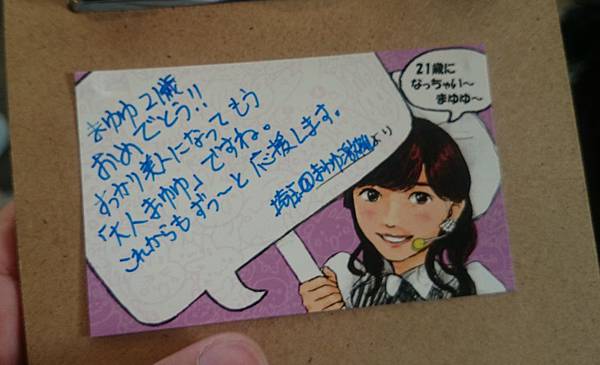 まゆゆ21歳
おめでとう!!
すっかり美人になってもう
「大人まゆゆ」ですね。
これからもずっ〜と応援します。
まゆゆ より
21歳に
なっちゃい〜
まゆゆ〜